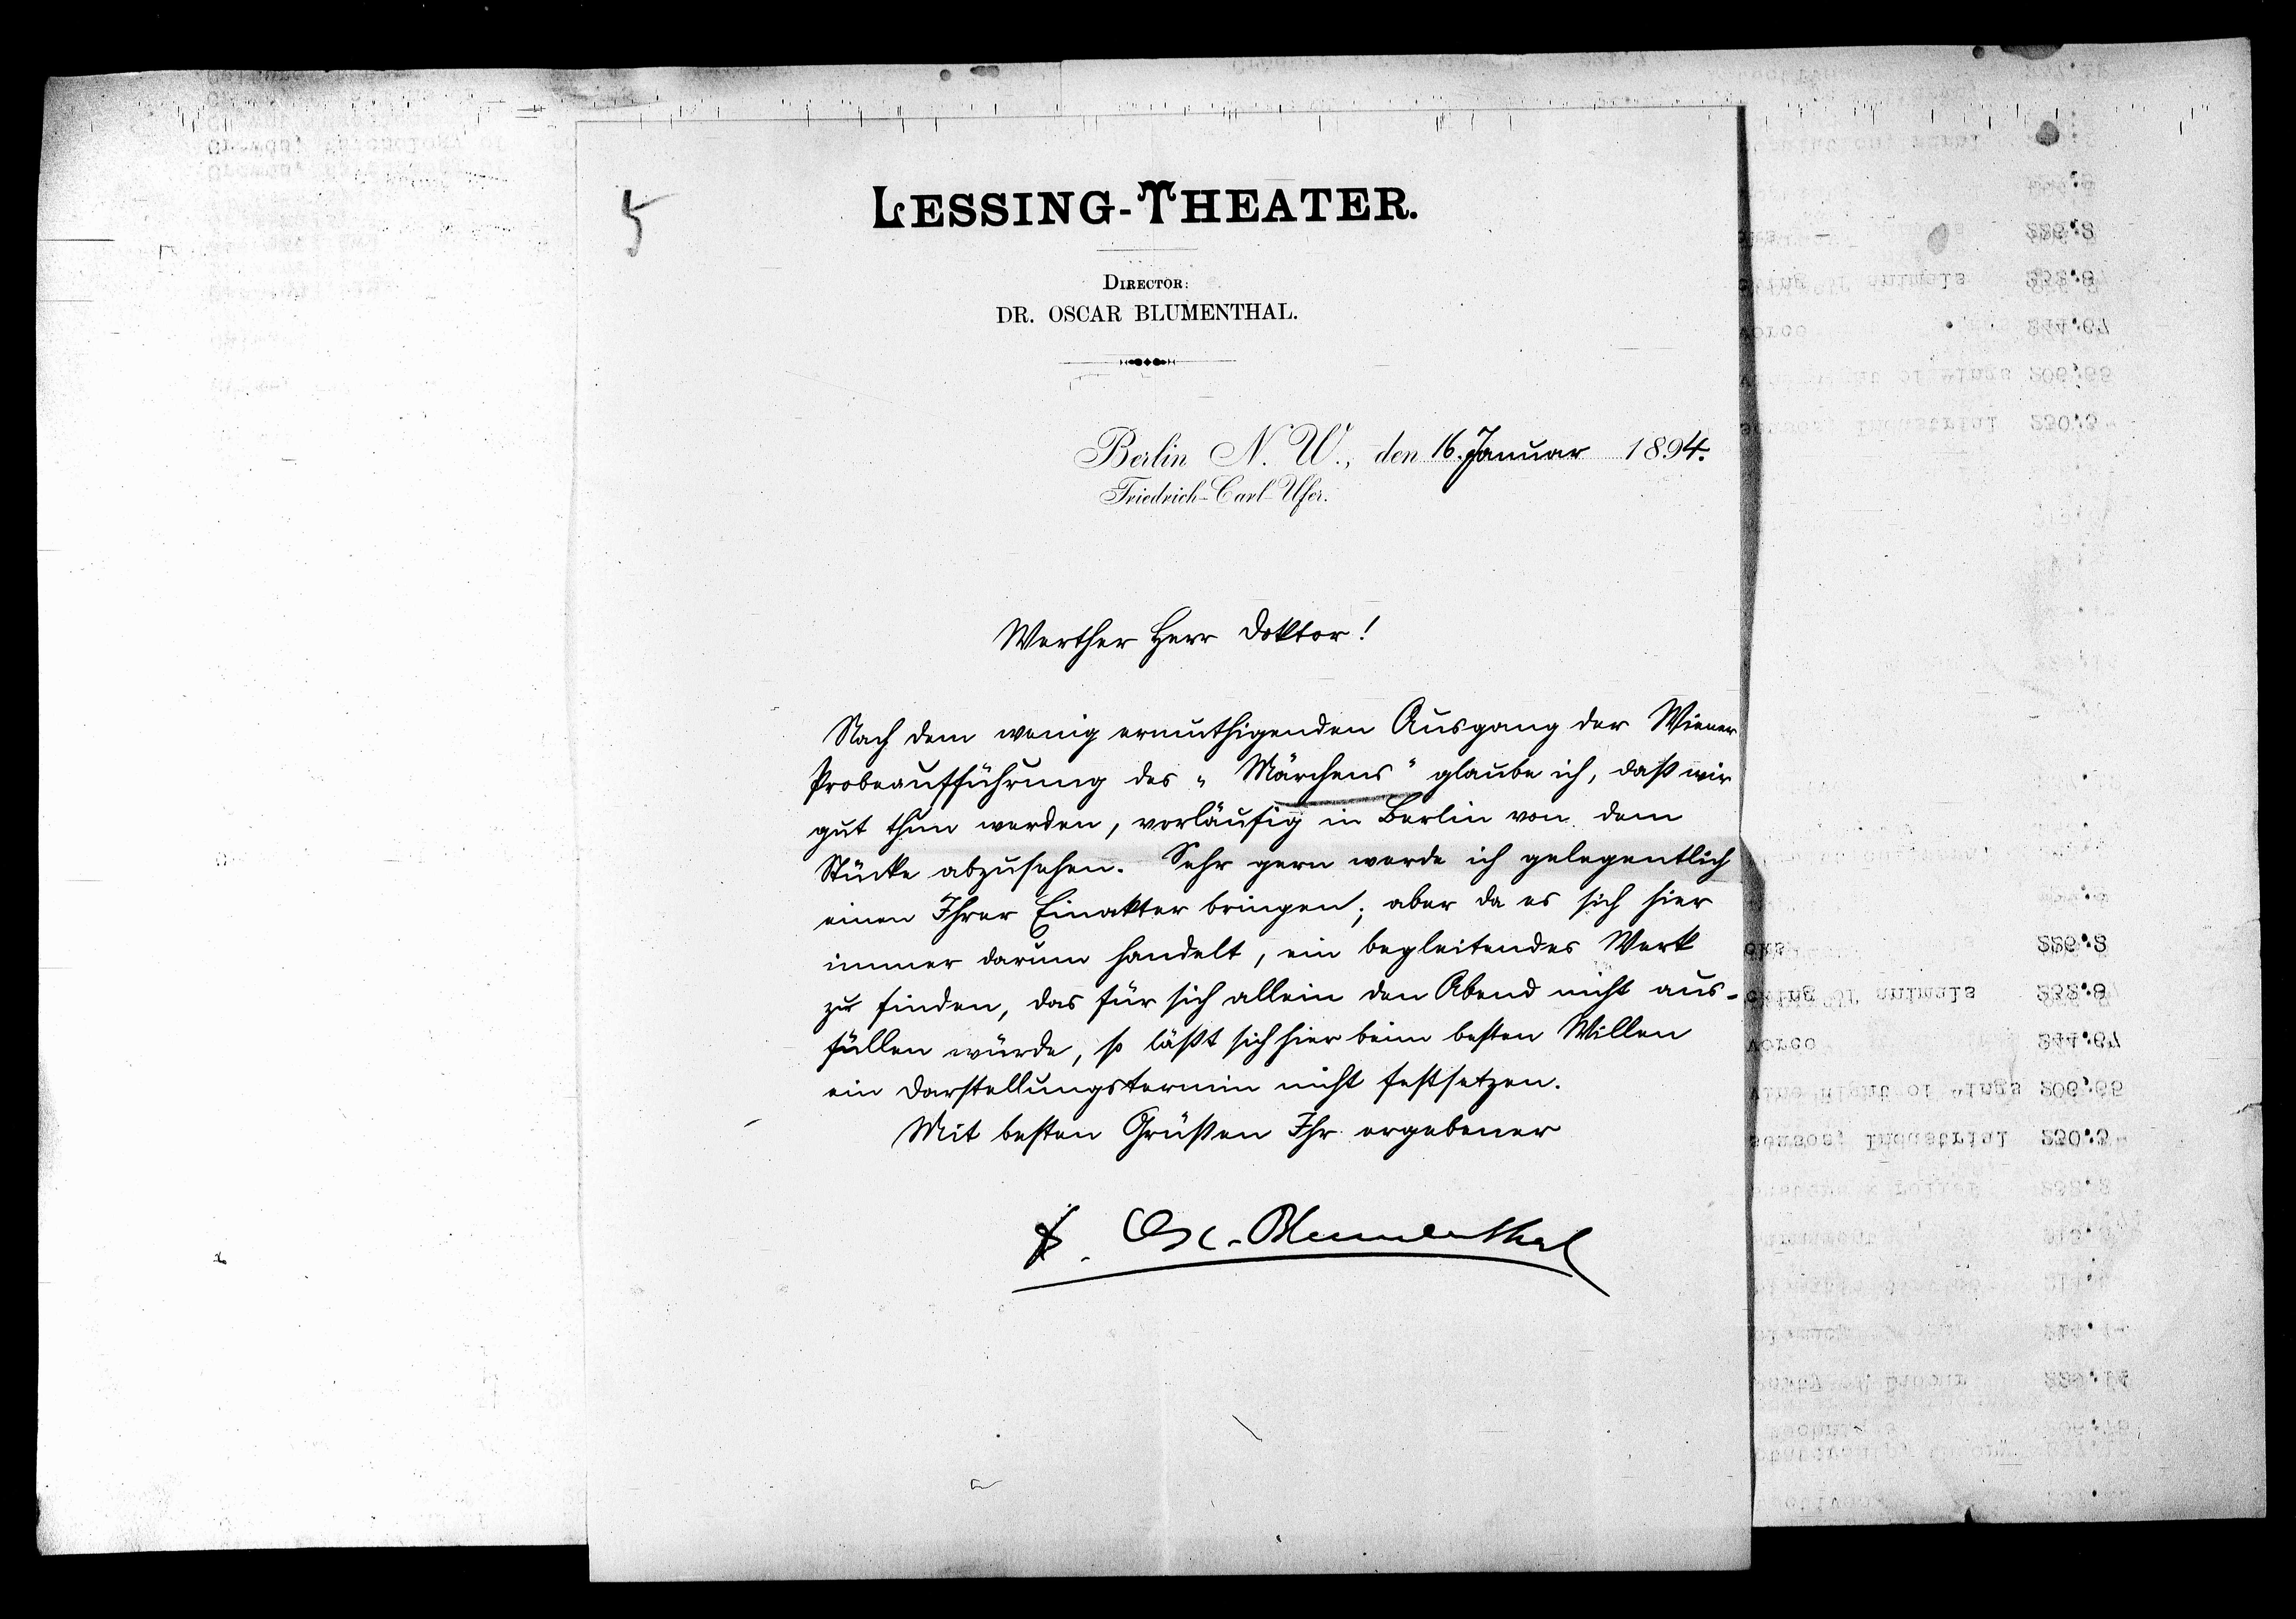 5
LESSING-THEATER.
DIRECTOR:
DR. OSCAR BLUMENTHAL.
Berlin N. W., den 16. Januar 1894.
Friedrich-Carl-Ufer.
Werther Herr Doktor!
Nach dem wenig ermuthigenden Ausgang der Wiener
Probeaufführung des „Märchens" glaube ich, daß wir
gut thun werden, vorläufig in Berlin von dem
Stücke abzusehen. Sehr gern werde ich gelegentlich
einen Ihrer Einakter bringen; aber da es sich hier
immer darum handelt, ein begleitendes Werk
zu finden, das für sich allein den Abend nicht aus-
füllen würde, so läßt sich hier beim besten Willen
ein Darstellungstermin nicht festsetzen.
Mit besten Grüßen Ihr ergebener
Osc. Blumenthal